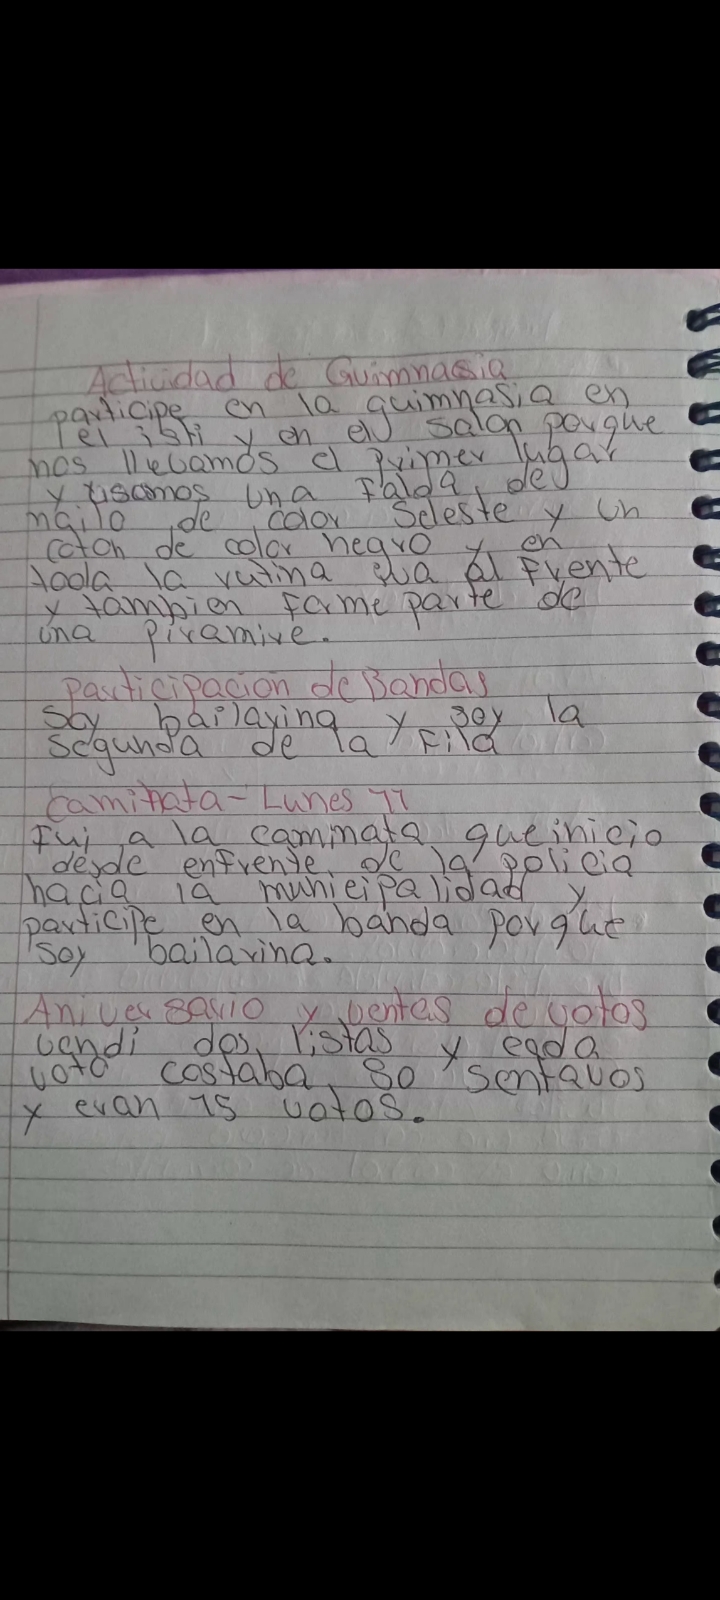 Actividad de Guimnasia
participe en la guimnasia en
el isti y en el salon porque
nos llevamos el primer lugar
y usamos una Falda de
nailo de color Seleste y un
coton de color negro y en
toda la rutina iva al frente
y tambien forme parte de
una piramive.
participacion de Bandas
Soy bailarina y soy la
segunda de la Fila
caminata - Lunes 11
Fui a la caminata que inicio
desde enfrente de la policia
hacia la municipalidad y
participe en la banda porque
soy bailarina.
Aniversario y ventas de votos
vendi dos listas y cada
voto costaba 50 sentavos
y eran 15 votos.